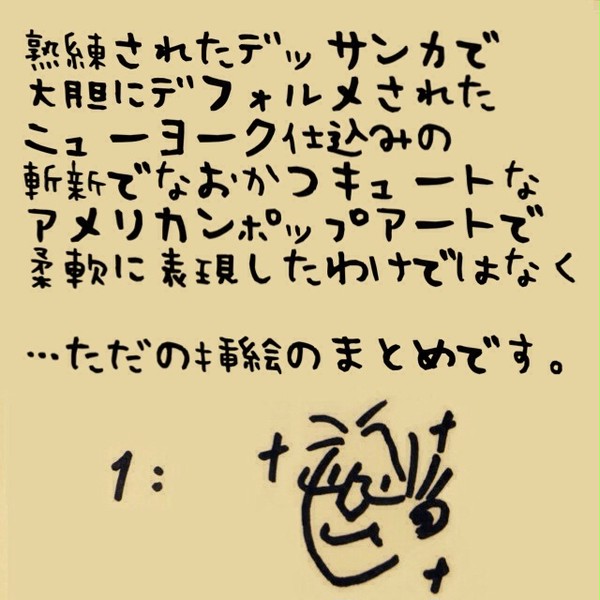 熟練されたデッサンカで
大胆にデフォルメされた
ニューヨーク仕込みの
斬新でなおかつキュートな
アメリカンポップアートで
柔軟に表現したわけではなく
…ただの挿絵のまとめです。
1: